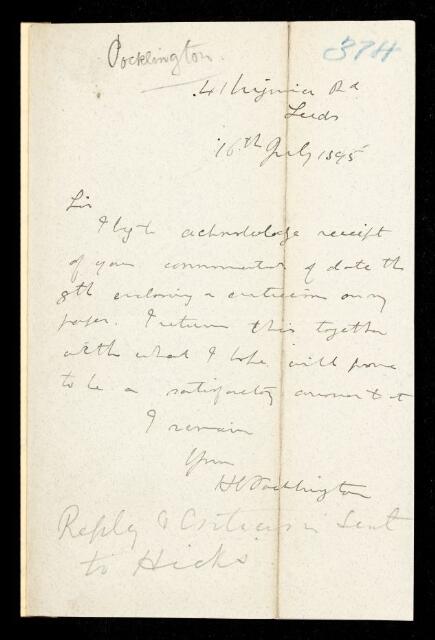 Pocklington.
374
41 Virginia Rd
Leeds
16th July 1895
Sir
I beg to acknowledge receipt
of your communication of date the
8th enclosing a criticism on my
paper. I return this together
with what I hope will prove
to be a satisfactory answer to it
I remain
Yours
H C Pocklington
Reply & Criticism Sent
to Hicks